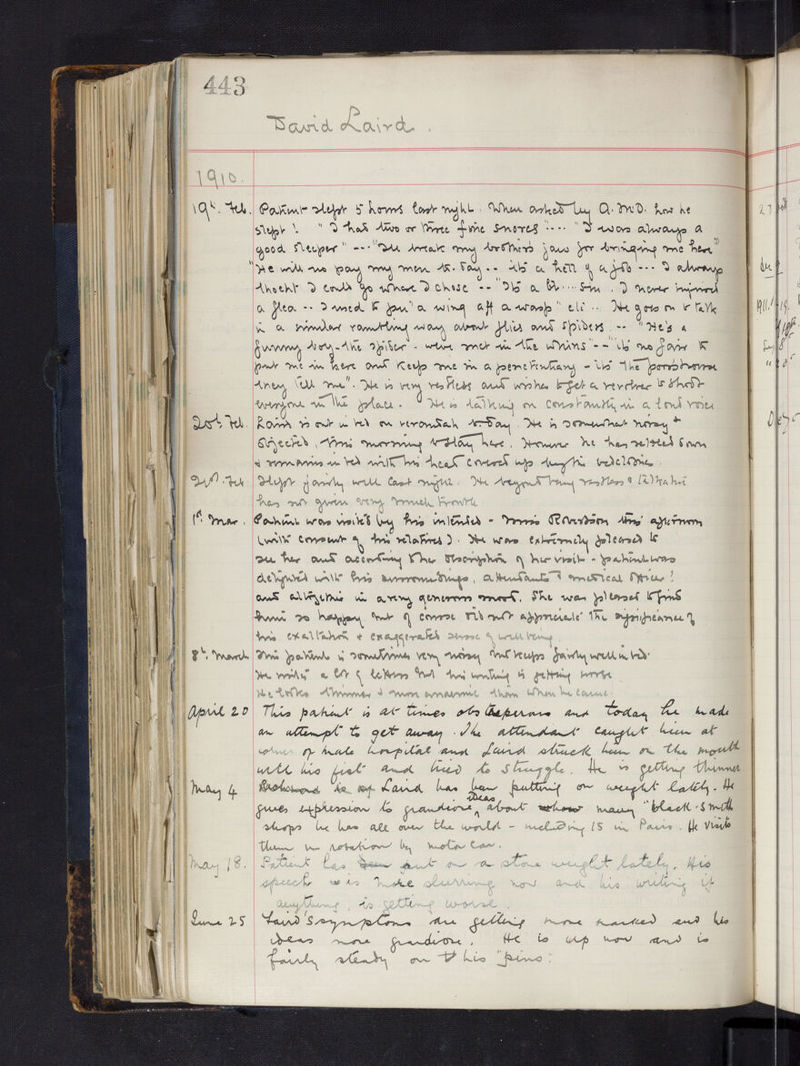 443
David Laird.
1910.
19th. Feb. Patient slept 5 hours last night. When asked by A.M.O. how he
slept! "I had two or three fine snores" ---- "I was always a
good sleeper" --- "I'll break my brother's jaw for bringing me here"
"He will no pay my men to-day -- it's a hell of a job --- I always
thocht I could go where I chose --- "It's a b.....  . I never injured
a flea -- I used to pu' a wing aff a wasp" etc .. He goes on to talk
in a similar rambling way about flies and spiders. -- "He's a
funny boy - the spider - we've met in the whins" -- "it's no fair to
put me in here and keep me in a penetentiary - it's the poorshouse
they tell me". He is very restless and wishes to get a revolver to shoot
everyone in the place. He is talking on constantly in a loud voice
20th. Feb. Laird is out in bed on verandah to-day. He is somewhat noisy &
objected this morning to stay here. However he has settled down
& remains in bed with his head covered up by his bedclothes.
21st. Feb. Slept fairly well last night. He beyond being restless & talkative
has not given very much trouble
1st. Mar. Patient was visited by his intended - Miss Robertson this afternoon
(with consent of his relatives). He was extremely pleased to
see her and according to the description of her visit - patient was
delighted with his surroundings, attendants & medical officer!
and altogether in a very generous mood. She was pleased to find
him so happy but of course did not appreciate the significance of
his exaltation & exaggerated sense of well being
8th. March This patient is sometimes very noisy but keeps fairly well in bed
He writes a lot of letters but his writing is getting worse
He looks thinner & more anaemic than when he came.
April 20 This patient is at times obstreperous and today he made
an attempt to get away. The attendant caught him at
corner of male hospital and Laird struck him on the mouth
with his fist and tried to struggle. He is getting thinner
May 4 Laird has been putting on weight lately. He
gives expression to grandiose ideas about many "black-smith
shops he has all over the world - including 15 in Paris. He visits
them in rotation by motor car.
May 18. Patient has put on a stone weight lately. His
speech is more slurring now and his writing if
anything, is getting worse.
June 25 Laird's symptoms are getting more marked and his
ideas more grandiose. He is up now and is
fairly steady on his "pins".